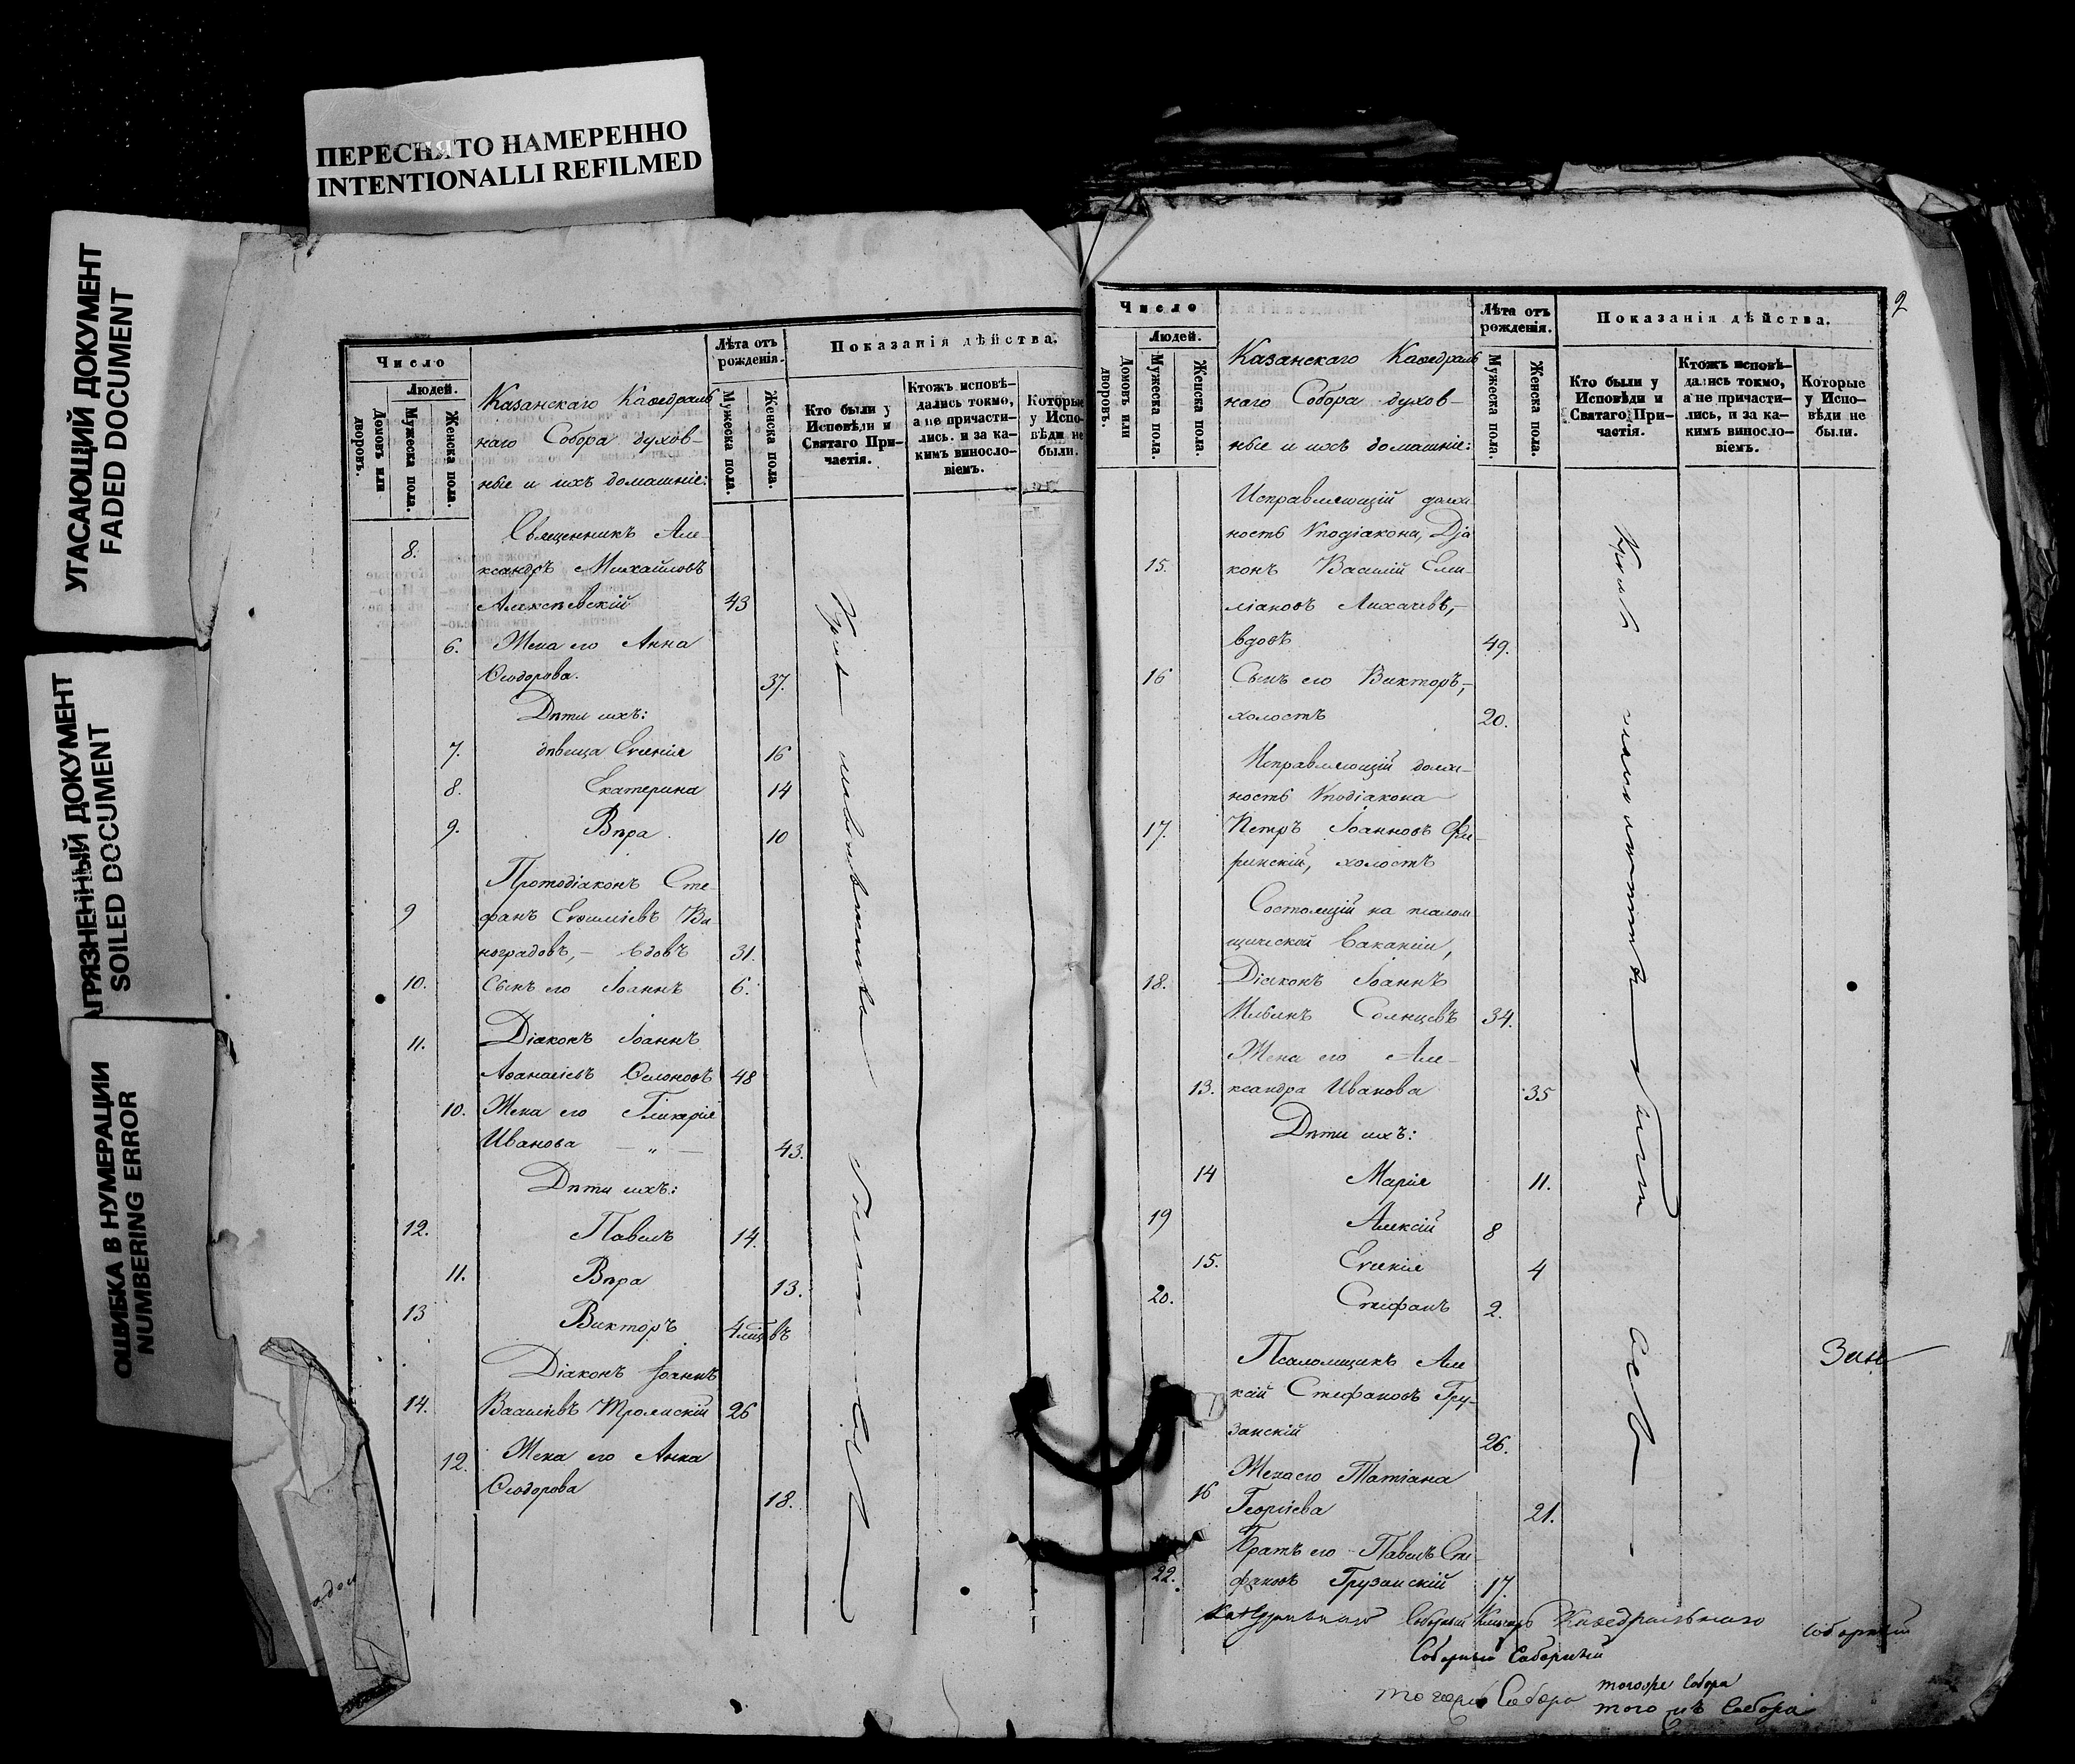 ПЕРЕСНЯТО НАМЕРЕННО
INTENTIONALLI REFILMED
УГАСАЮЩИЙ ДОКУМЕНТ
FADED DOCUMENT
АГРЯЗНЕННЫЙ ДОКУМЕНТ
SOILED DOCUMENT
ОШИБКА В НУМЕРАЦИИ
NUMBERING ERROR
Число
Людей.
Домовъ или дворовъ.
Мужеска пола.
Женска пола.
Казанскаго Каѳедраль
наго Собора духов-
ные и ихъ домашніе:
Лѣта отъ рожденія.
Мужеска пола.
Женска пола.
Показанія дѣйства.
Кто были у Исповѣди и Святаго При-частія.
Ктожъ исповѣ-дались токмо, а не причасти-лись. и за ка-кимъ винослo-віемъ.
Которые у Испо-вѣди не были.
Священникъ Але-
8. ксандръ Михайловъ
Алексѣевскій 43
6. Жена его Анна
Ѳеодорова. 37.
Дѣти ихъ:
7. дѣвица Евгенія 16
8. Екатерина 14
9. Вѣра 10
Протодіаконъ Сте-
9 фанъ Ви-
ноградовъ,- вдовъ 31.
10. Сынъ его Іоаннъ 6.
11. Діаконъ Іоаннъ
Аѳанасіевъ 48
10. Жена его Гликерія
Иванова — „ — 43.
Дѣти ихъ:
12. Павелъ 14.
11. Вѣра 13.
13 Викторъ 4 мѣс.
Діаконъ Іоаннъ
14. Василіевъ 26
12. Жена его Анна
Ѳеодорова 18.
были всѣ
2
Число
Людей.
Домовъ или дворовъ.
Мужеска пола.
Женска пола.
Казанскаго Каѳедраль
наго Собора духов-
ные и ихъ домашніе:
Лѣта отъ рожденія.
Мужеска пола.
Женска пола.
Показанія дѣйства.
Кто были у Исповѣди и Святаго При-частія.
Ктожъ исповѣ-дались токмо, а не причасти-лись, и за ка-кимъ винослo-віемъ.
Которые у Испо-вѣди не были.
Исправляющій долж
ность Ѵподіакона, Діа
15. конъ Василій Еми-
ліановъ Лихачевъ,-
вдовъ 49.
16 Сынъ его Викторъ,-
холостъ 20.
Исправляющій долж-
ность Ѵподіакона
17. Петръ Іоанновъ Фи-
ринскій, холостъ
Состоящій на псалом
щической вакансіи,
18. Діаконъ Іоаннъ
Ильинъ Солнцевъ 34.
Жена его Але-
13. ксандра Иванова 35
Дѣти ихъ:
14 Марія 11.
19 Алексій 8
15. Евгенія 4
20. Стефанъ 2.
Псаломщикъ Але
ксій Стефановъ Гру-
занскій 26.
Жена его Татіана
16 Георгіева 21.
Братъ его Павелъ Сте-
22. фановъ Грузанскій 17.
были всѣ
Каѳедральнаго
Собора
тогоже Собора
того же Собора